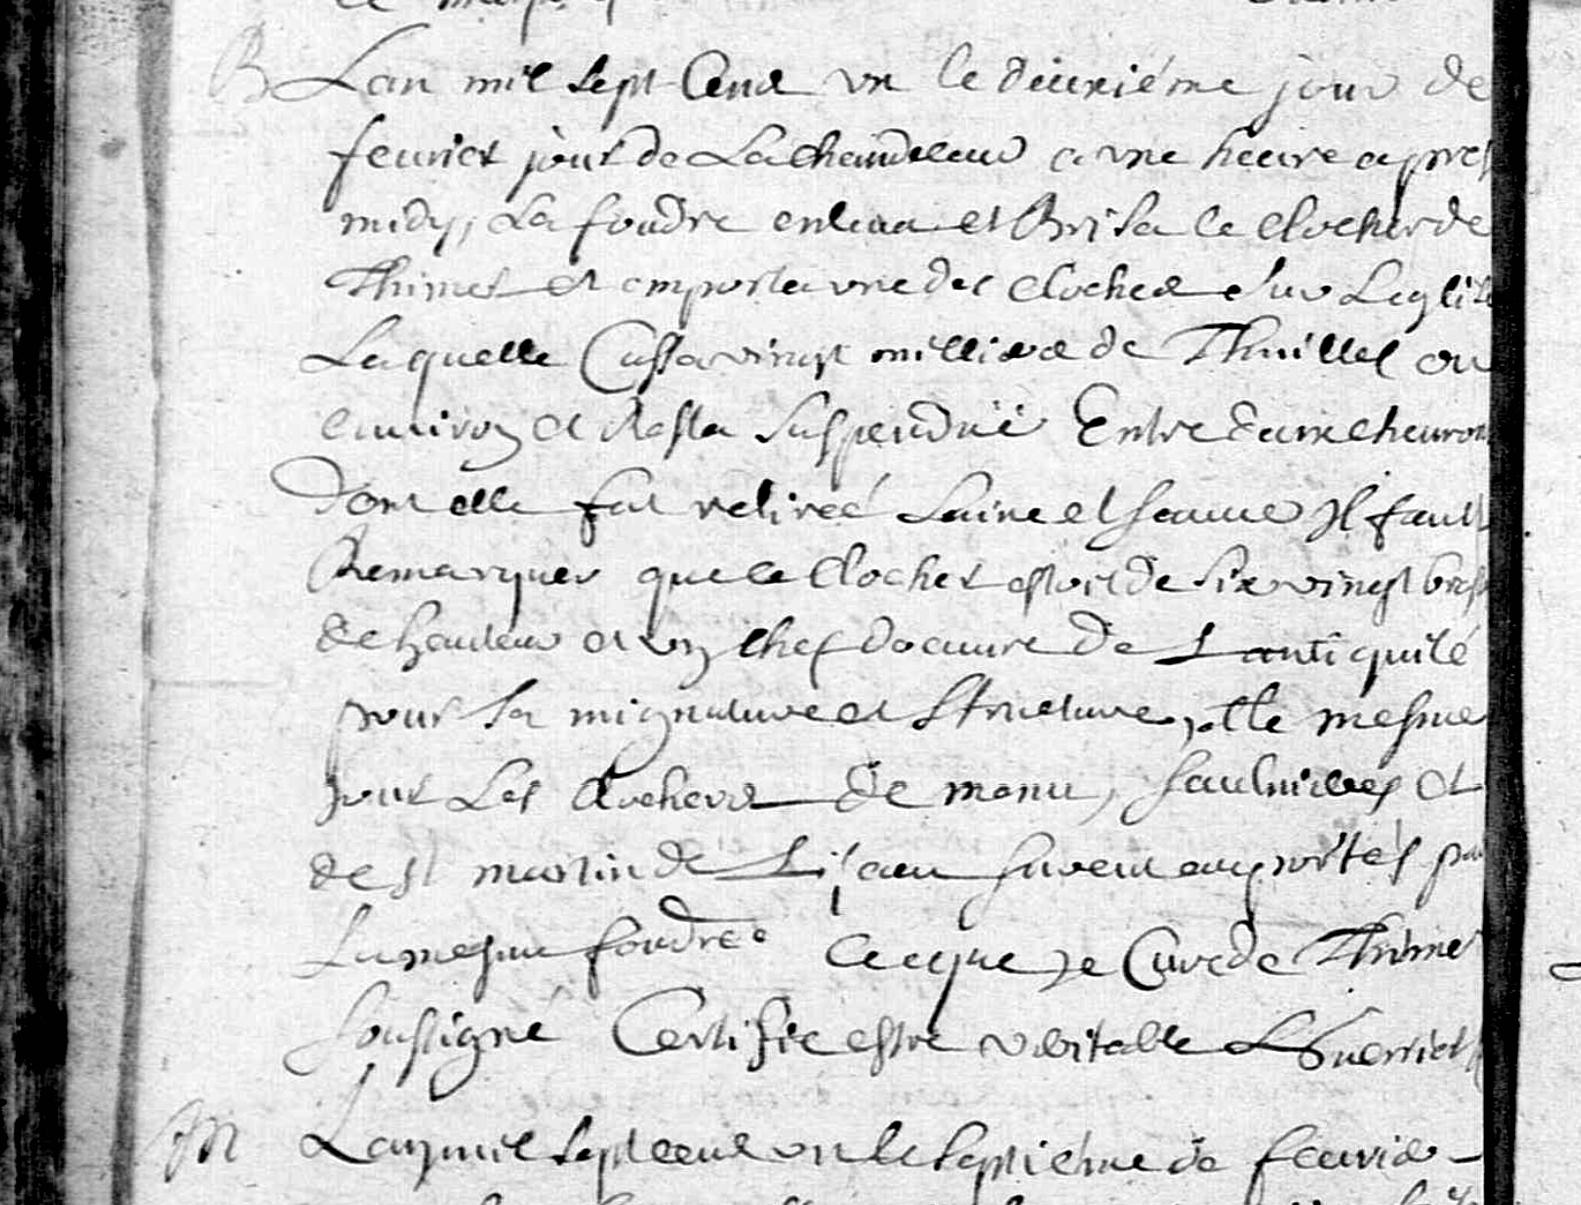 B Lan mil sept Cens un le deuxiéme jour de
feurier jour de La chandeleur a une heure apres
midy, La foudre enleua et Brisa le clocher de
Thimer et emporta une des cloches sur Leglise
Laquelle Cassa vingt milliers de Thuilles ou
enuiron et Resta suspenduë Entre deux cheurons
Dont elle fut retireé saine et sauue Il fault
Remarquer que le Clocher estoit de six vingt
de hauteur et un chef doeuure de Lantiquité
pour sa mignature et structure, et le mesme
jour Les clochers de manu, saulnieres et
de st martin de Lezeau furent emportés par
La mesme foudre Ce que Je Curé de Thimer
soussigné Certifie estre veritable L Guerrier
M Lan mil sept cens un le septiéme de feurier